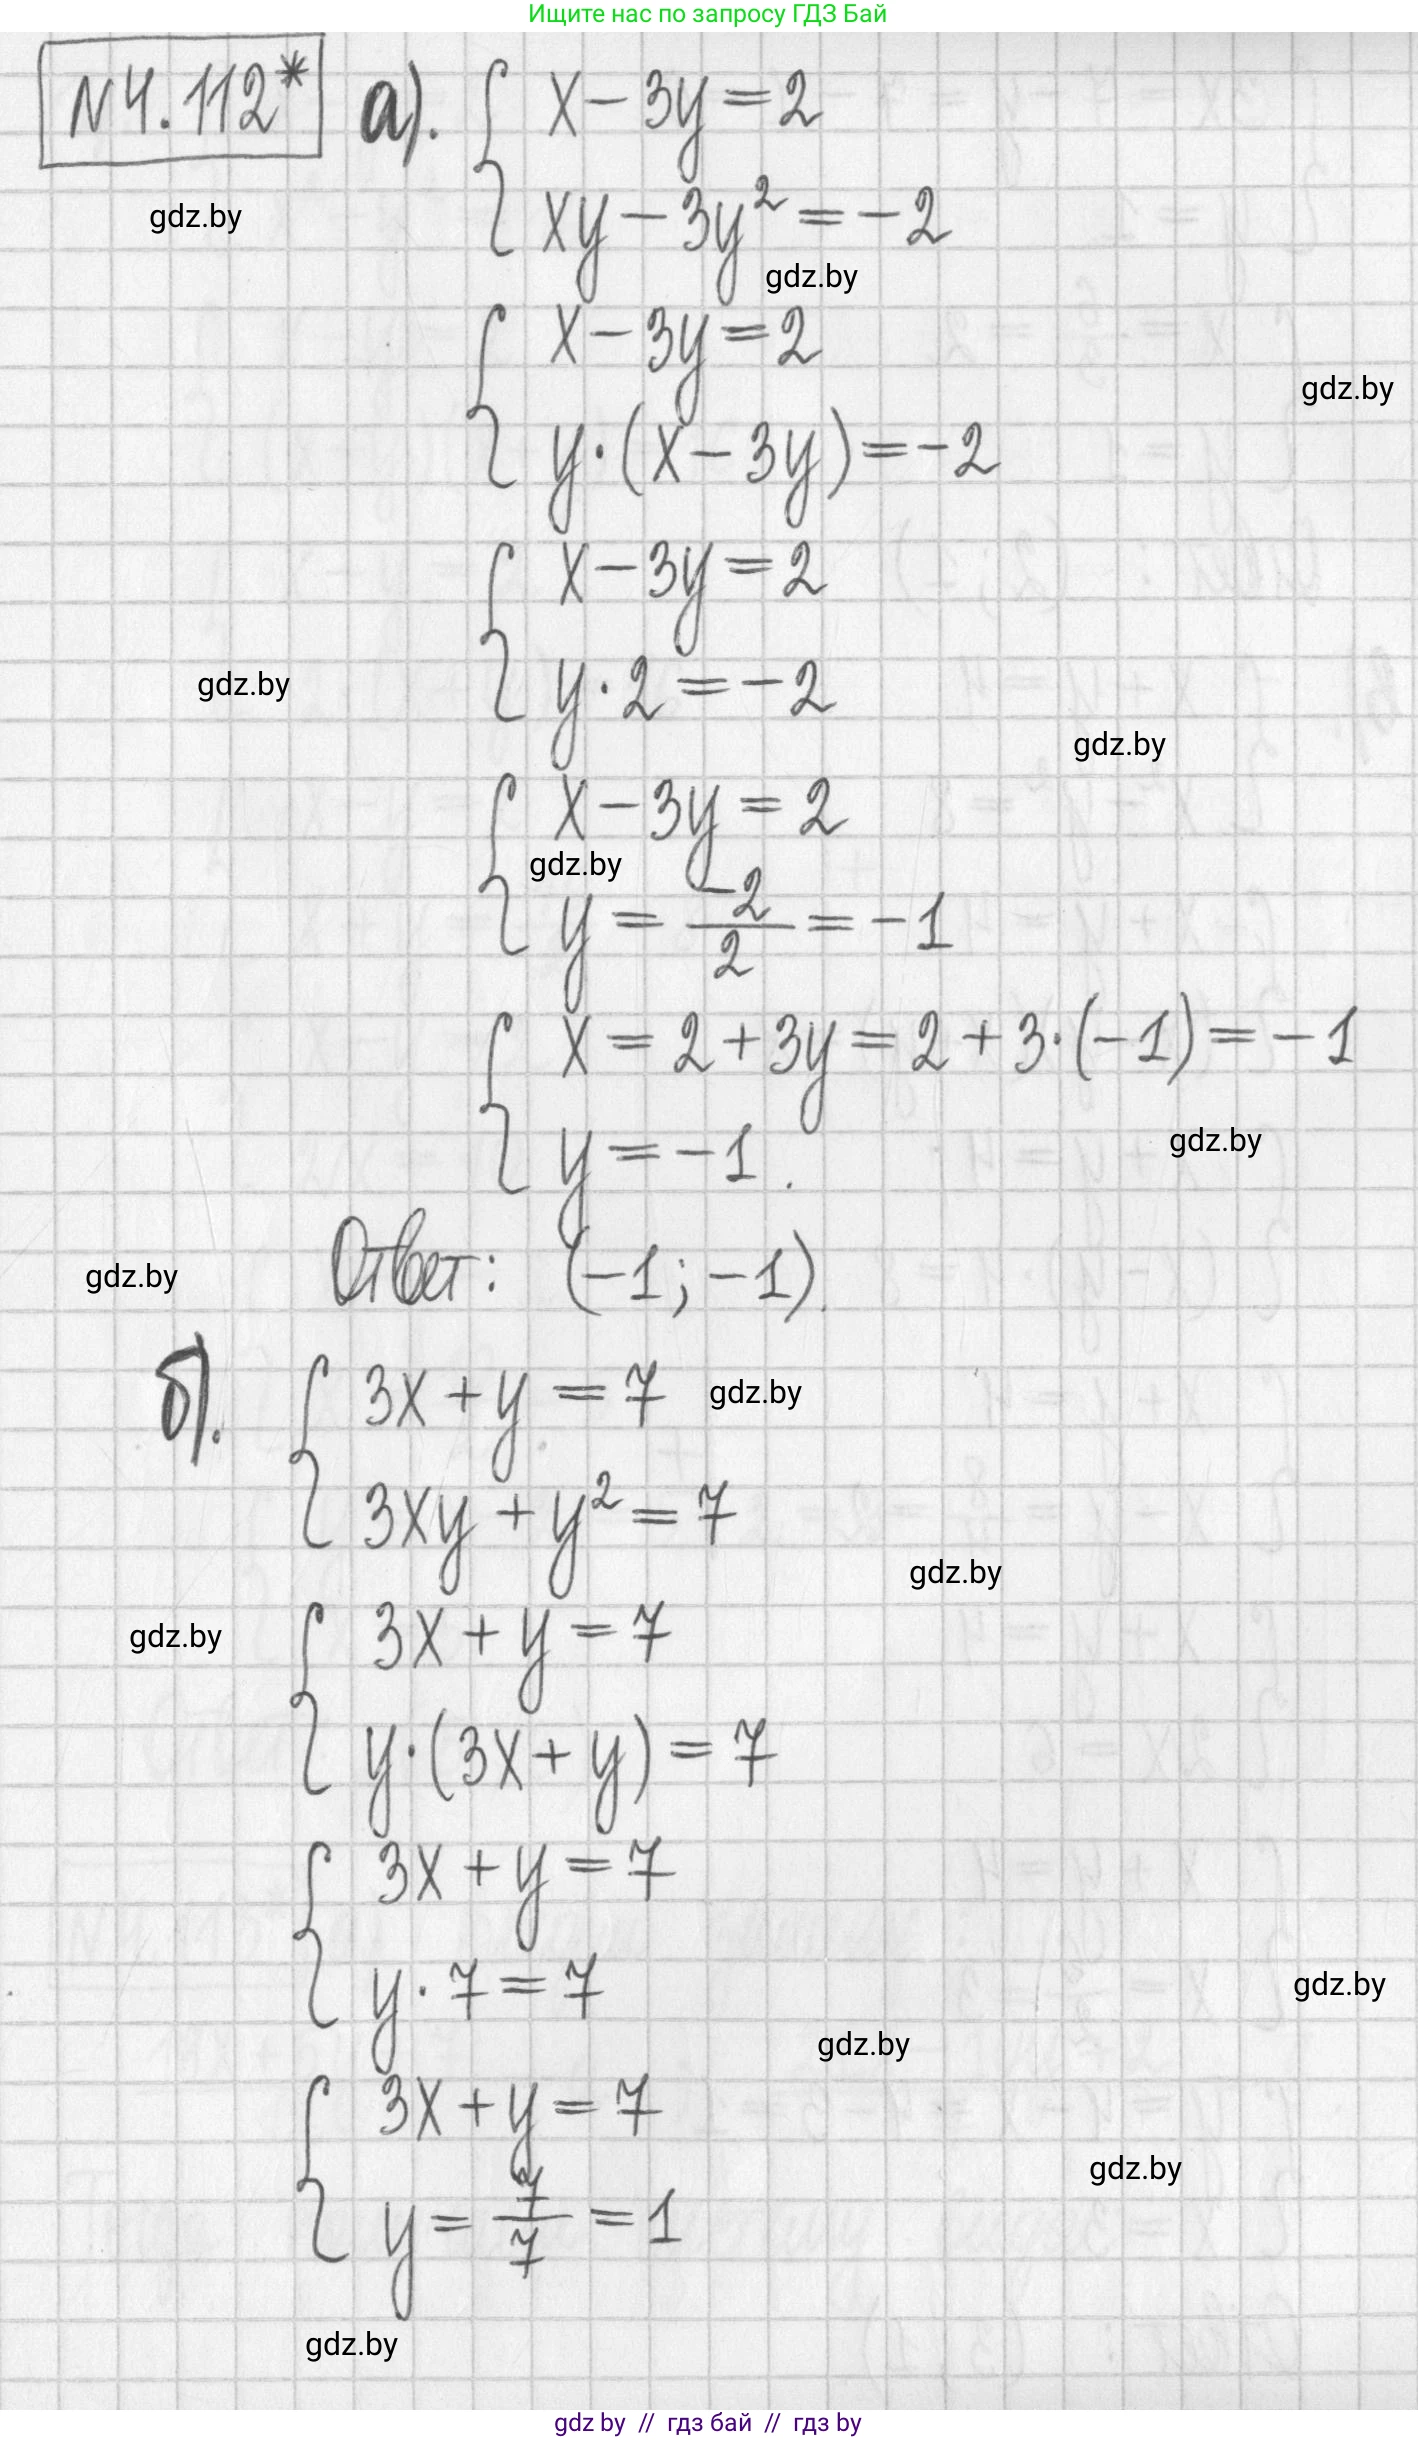 Ищите нас по запросу ГДЗ Бай
N4.112* а). { x - 3y = 2
xy - 3y² = -2
gdz.by
gdz.by
{ x - 3y = 2
gdz.by
y·(x - 3y) = -2
{ x - 3y = 2
y·2 = -2
gdz.by
gdz.by
{ x - 3y = 2
gdz.by
y = -2/2 = -1
{ x = 2 + 3y = 2 + 3·(-1) = -1
y = -1.
gdz.by
Ответ: (-1; -1).
gdz.by
б). { 3x + y = 7
gdz.by
3xy + y² = 7
gdz.by
{ 3x + y = 7
gdz.by
y·(3x + y) = 7
{ 3x + y = 7
y·7 = 7
gdz.by
gdz.by
{ 3x + y = 7
gdz.by
y = 7/7 = 1
gdz.by
gdz by // гдз бай // гдз by